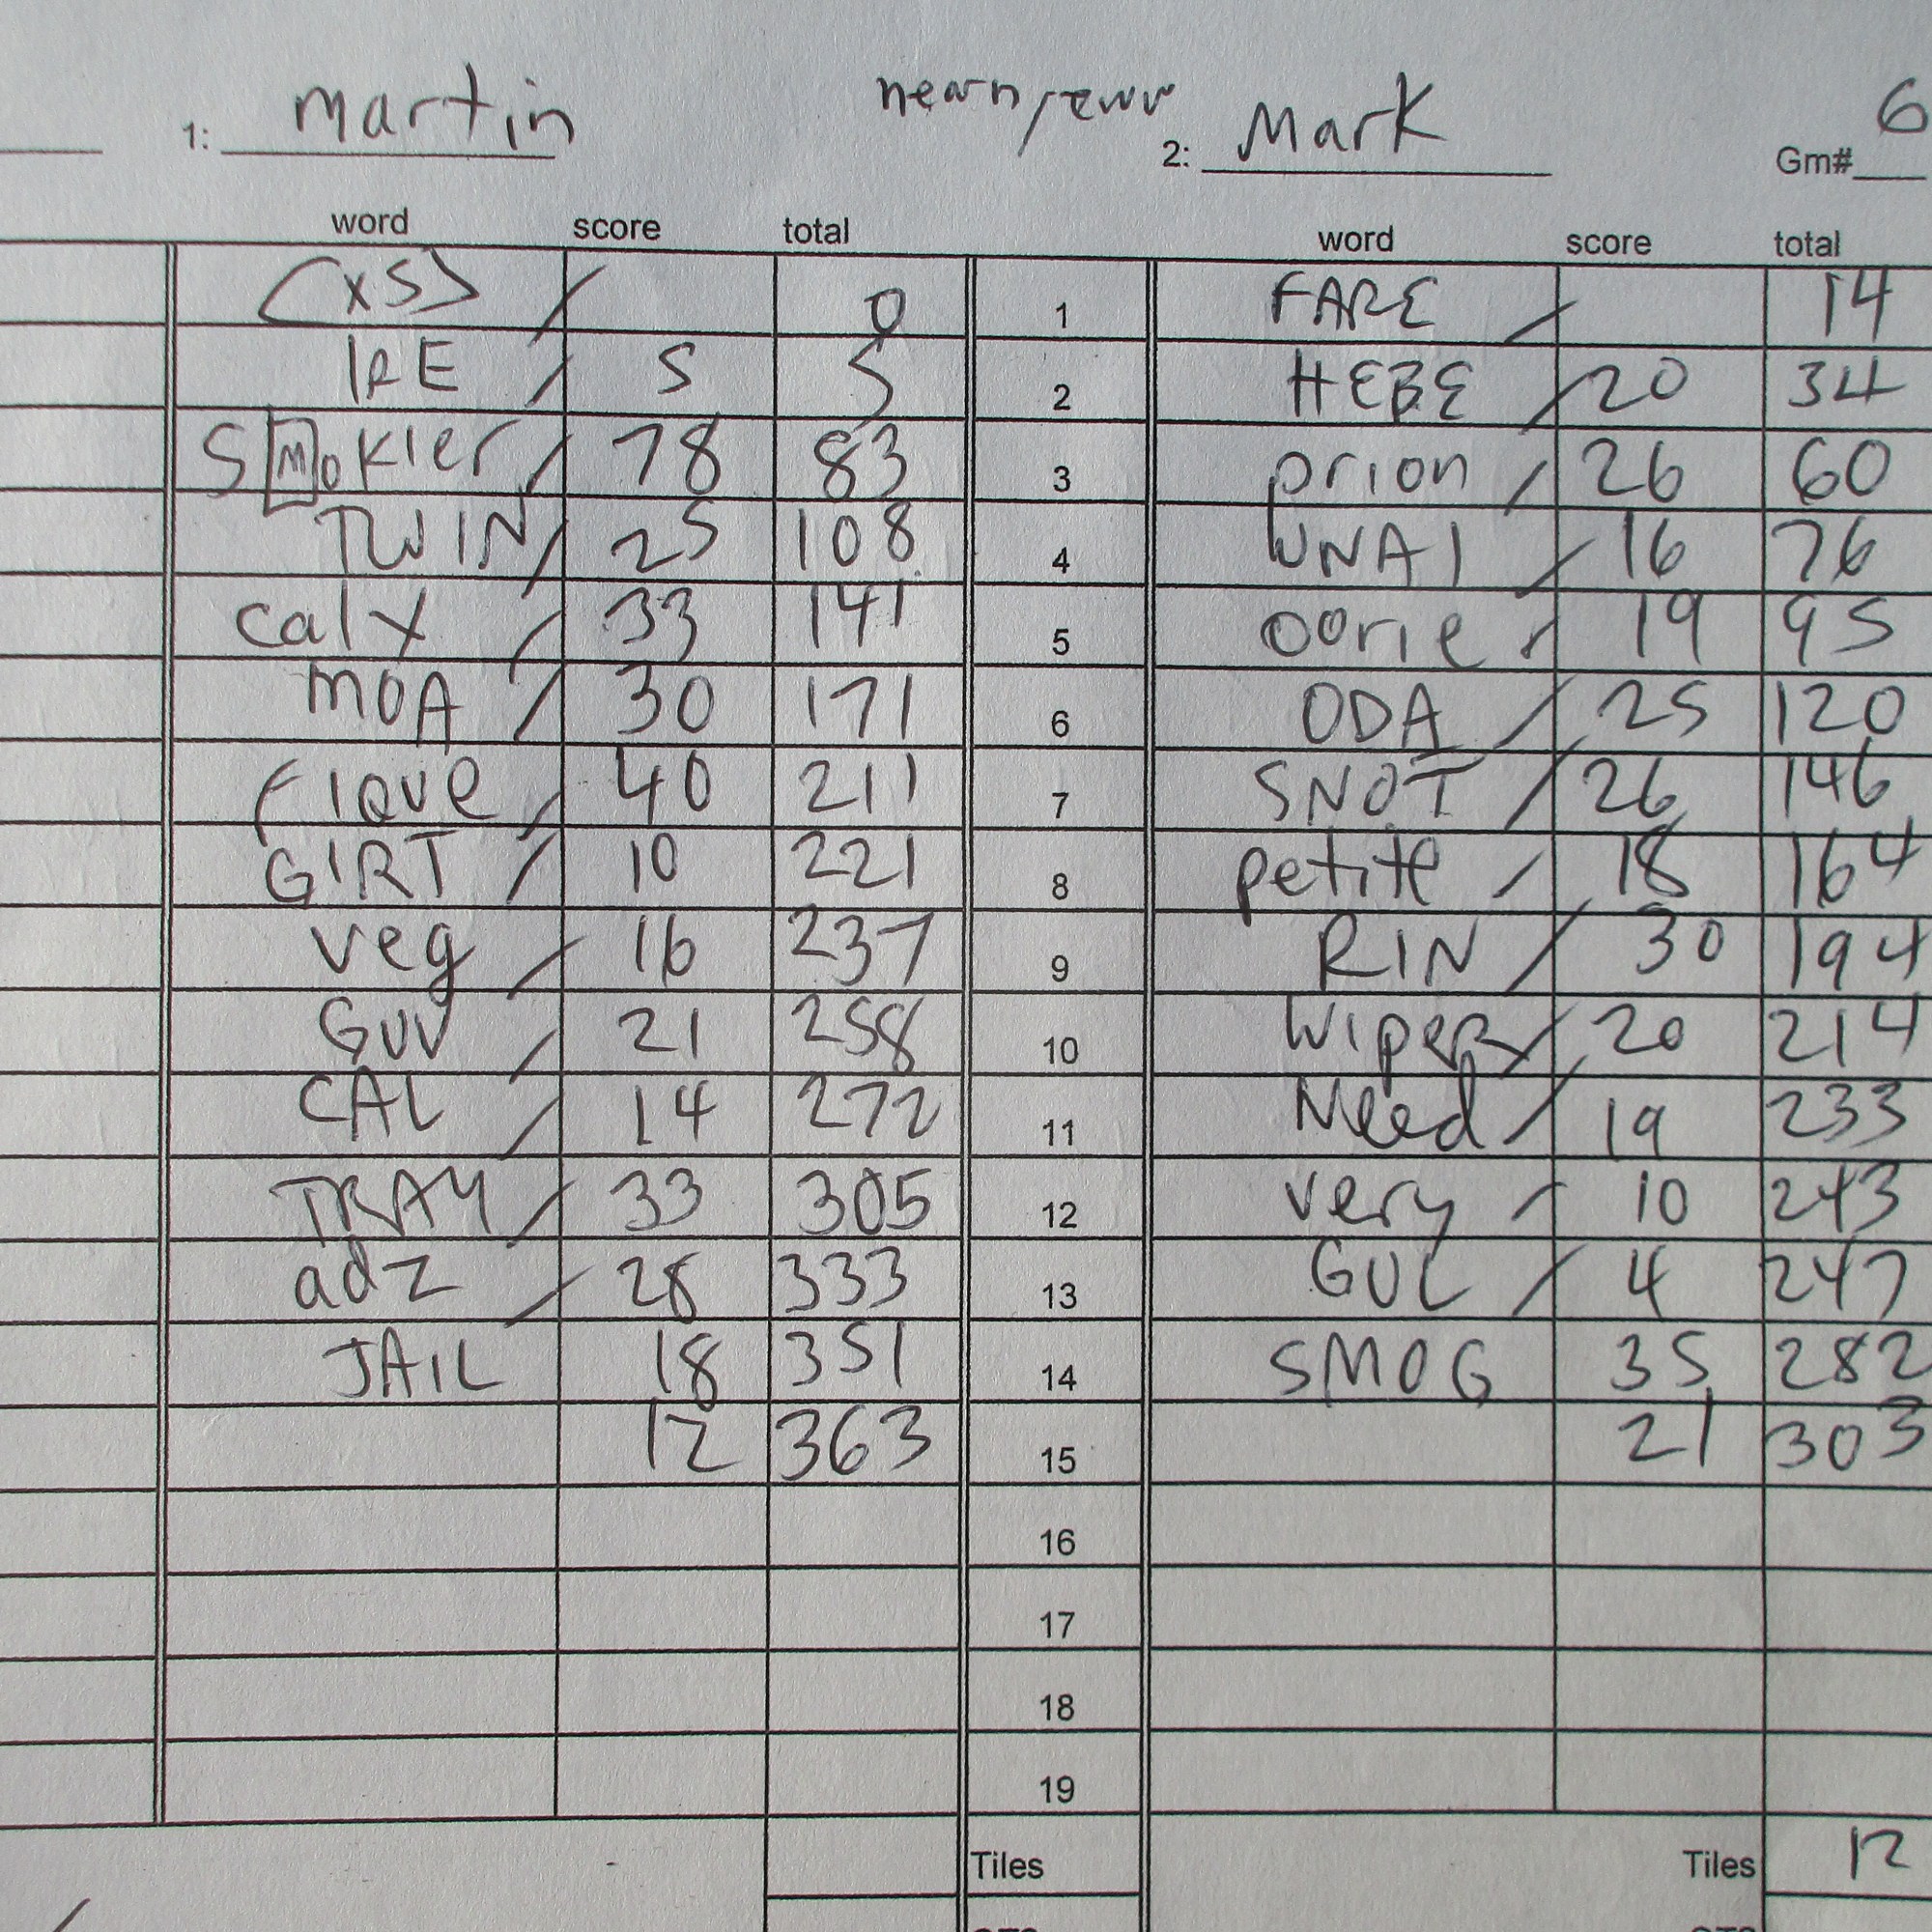 1: martin 2: Mark Gm# 6
word score total word score total
(x5) 0 1 FARE 14
IRE 5 5 2 HEBE 20 34
SMoKIer 78 83 3 orion 26 60
TWIN 25 108 4 UNAI 16 76
calx 33 141 5 oorie 19 95
MOA 30 171 6 ODA 25 120
fique 40 211 7 SNOT 26 146
GIRT 10 221 8 petite 18 164
veg 16 237 9 RIN 30 194
GUV 21 258 10 WipeR 20 214
CAL 14 272 11 Need 19 233
TRAY 33 305 12 very 10 243
adz 28 333 13 GUL 4 247
JAIL 18 351 14 SMOG 35 282
12 363 15 21 303
16
17
18
19
Tiles Tiles 12